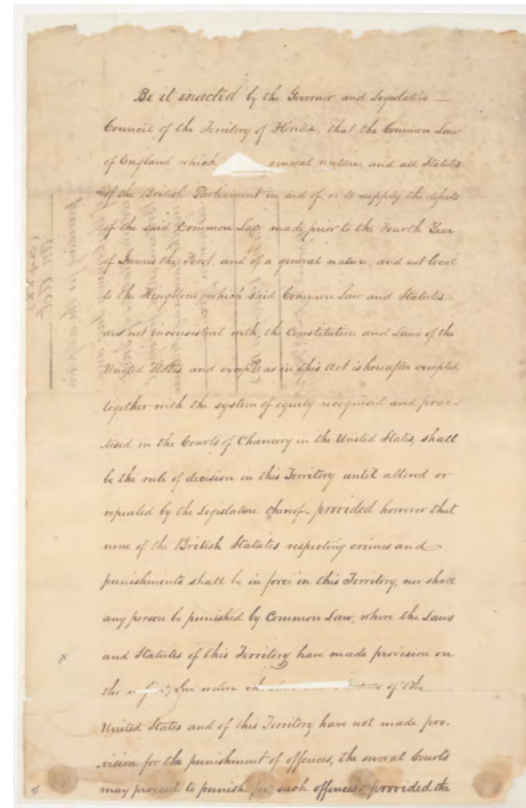 Be it enacted by the Governor and Legislative
Council of the Territory of Florida, that the Common Law
of England which eneral nature, and all Statutes
of the British Parliament in aid of, or to supply the defects
of the said Common Law made prior to the Fourth Year
of James the First and of a general nature, and not local
to the Kingdom, which said Common Law and Statutes
are not inconsistent with the Constitution and Laws of the
United States, and except as in this Act is hereafter excepted,
together with the system of equity recognised and prac-
tised in the Courts of Chancery in the United States, shall
be the rule of decision in this Territory until altered or
repealed by the Legislature thereof provided however that
none of the British Statutes respecting crimes and
punishments shall be in force in this Territory, nor shall
any person be punished by Common Law, where the Laws
and Statutes of this Territory have made provision on
the where of the
United States and of this Territory have not made pro-
vision for the punishment of offences, the several Courts
may proceed to punish for such offences provided the